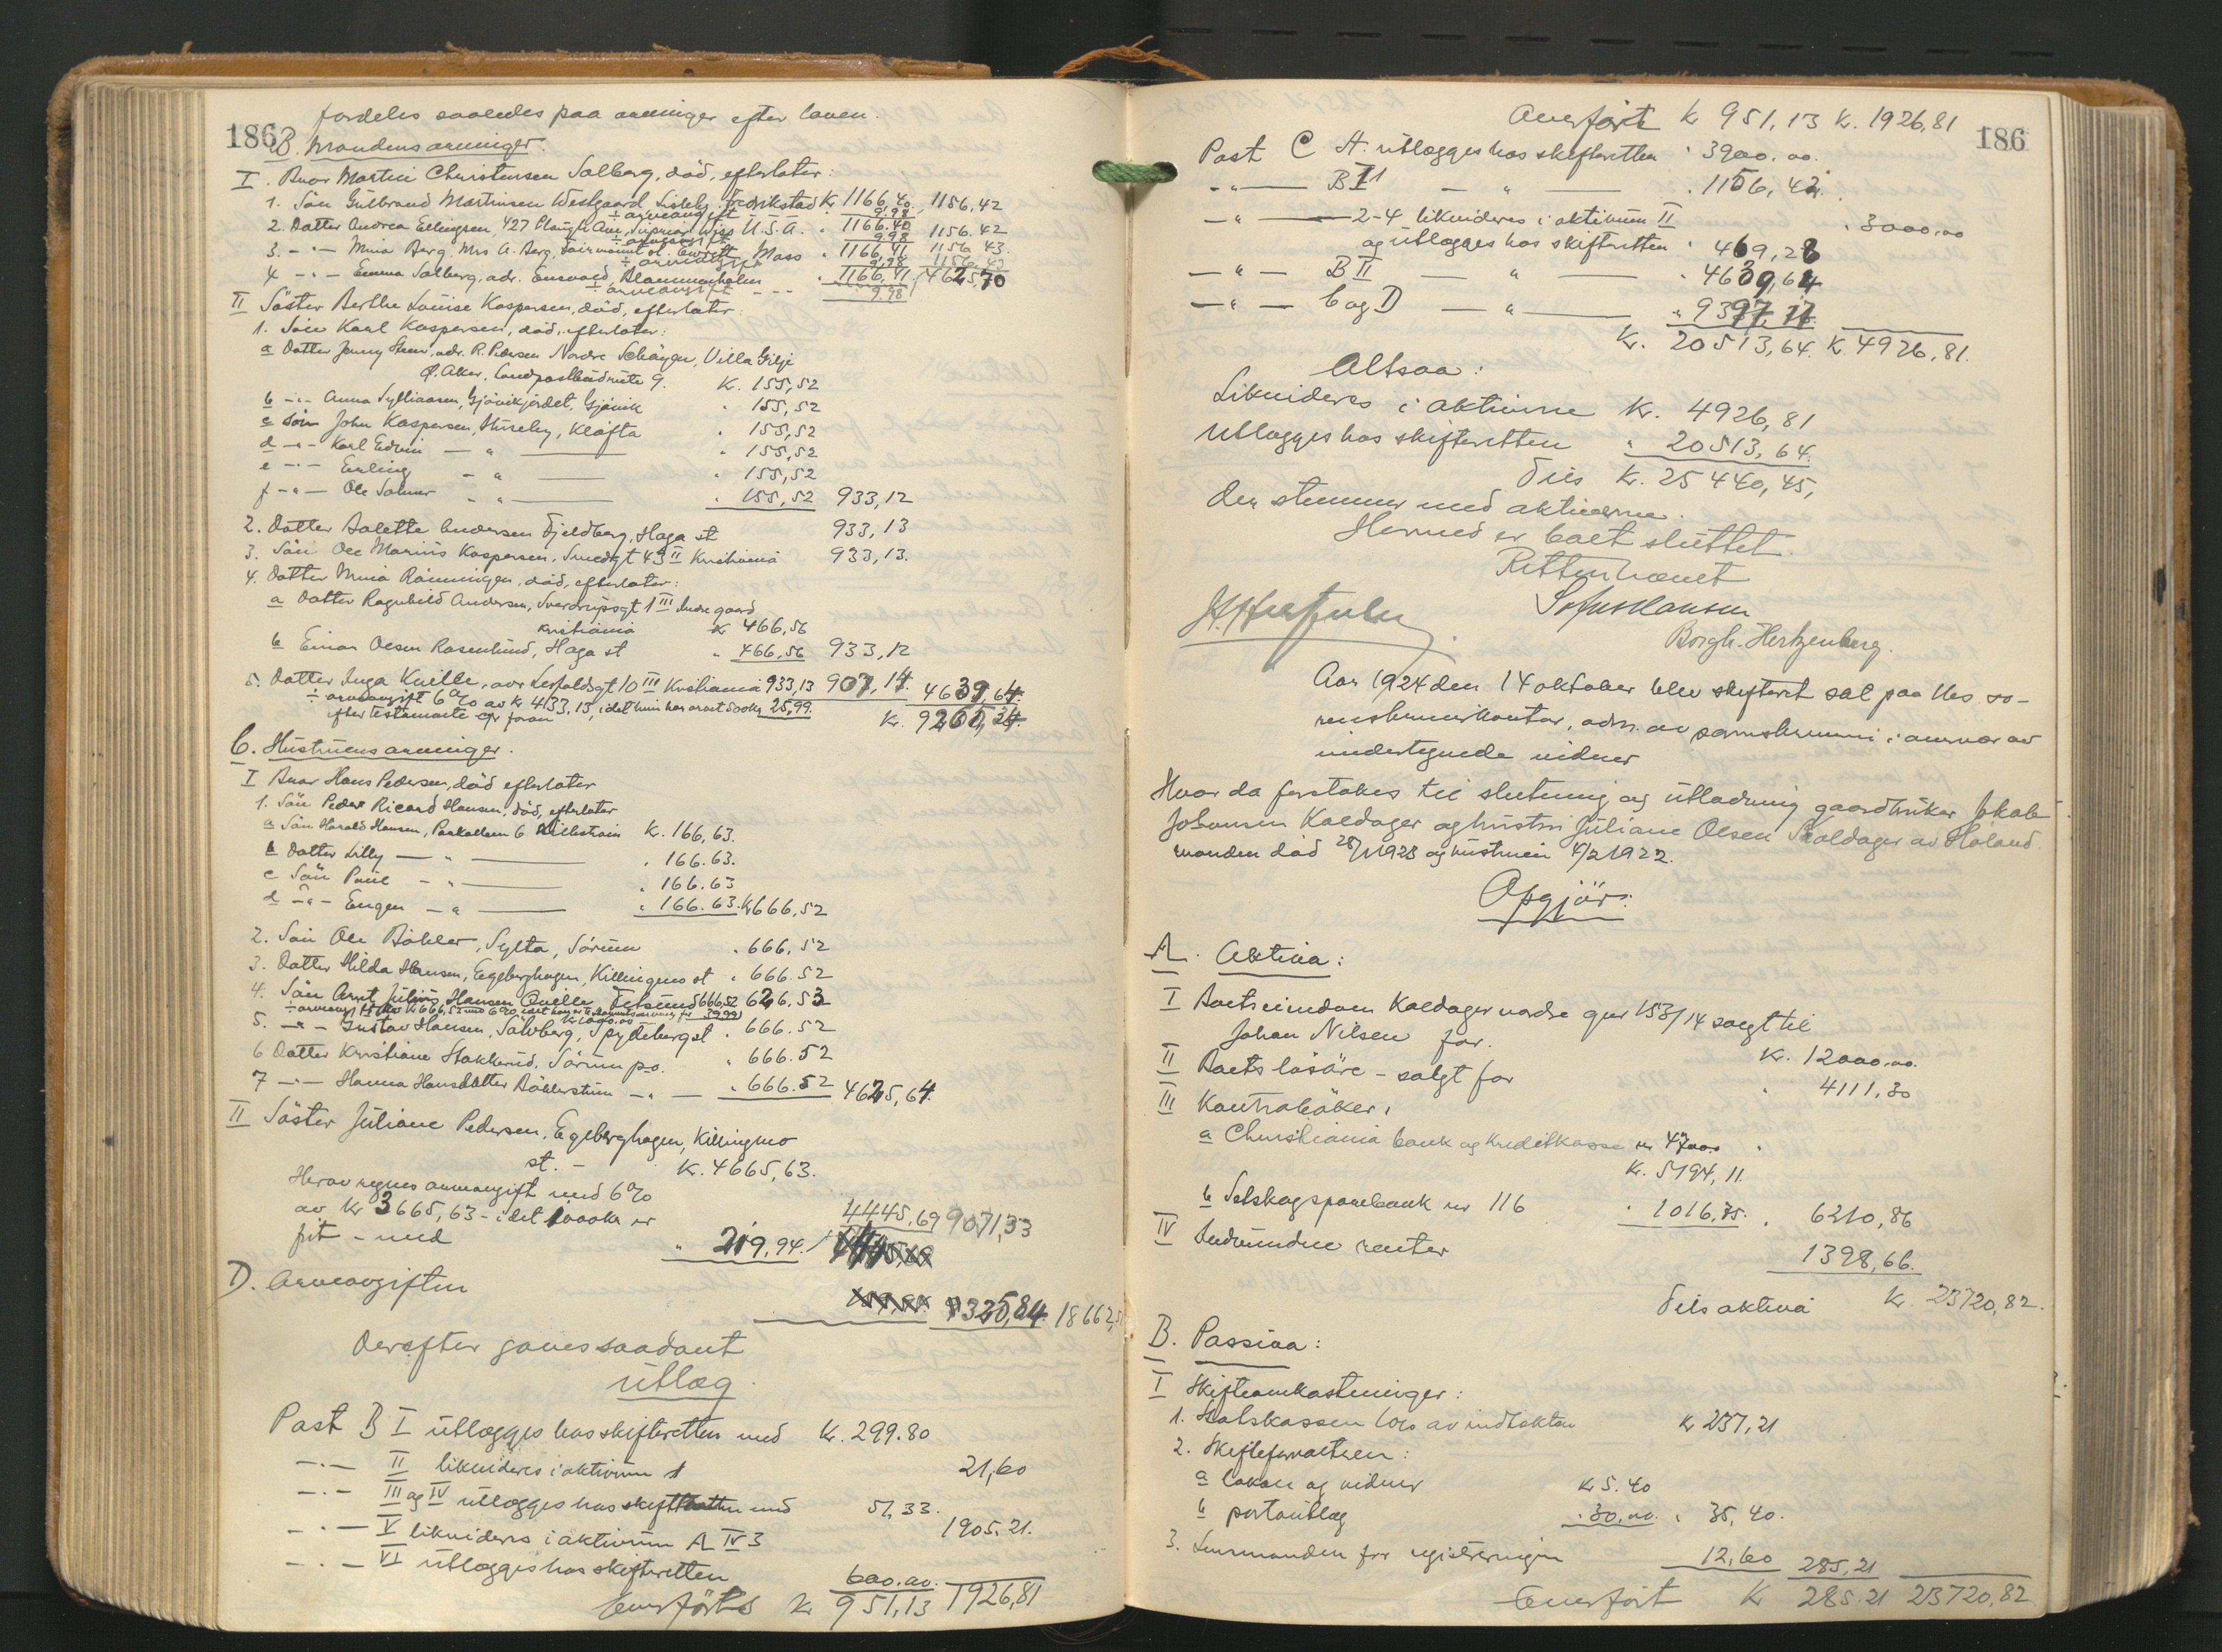 fordeles saaledes paa arvinger efter loven.
186
B. Mandens arvinger.
I. Bror Martin Christensen Solberg, död, efterlater:
1. Sön Gulbrand Martinsen Westgaard Lisleby Fredrikstad Kr 1166,40 1156,42
÷ arveavgift 9.98
2. Datter Andrea Ellingsen, 427 Plough Ave, Superior Wis U.S.A. " 1166,40 1156.42
÷ arveavgift 9.98
3. -"- Mina Berg, Mrs A. Berg, Fairmount st. Everett Mass " 1166,41 1156 43.
÷ arveavgift 9,98 1156,43
4 -"- Emma Solberg, adr. Blommenholm " 1166,41. 4625,70
÷ arveavgift - - - 9.98
II Söster Berthe Louise Kaspersen, död, efterlater:
1. Sön Karl Kaspersen, död, efterlater:
a Datter Jenny Steen, adr. R. Pedersen Nordre Schöyen, Villa Gilje
Ø. Aker, Landpostbudrute 9. K. 155,52
b -"- Anna Sylliaasen, Gjövikjordet, Gjövik " 155,52
c Sön John Kaspersen, Huseby, Klöfta " 155,52
d -"- Karl Edvin - " - " 155,52
e -"- Erling - " - " 155,52
f -"- Ole Solmer - " - " 155,52 933,12
2. Datter Bolette Andersen Fjeldberg, Haga st 933,13
3. Sön Ole Marius Kaspersen, Smedgt 43 II Kristiania 933,13.
4. Datter Mina Rönningen, död, efterlater:
a Datter Ragnhild Andersen, Sverdrupsgt 1 III indre gaard
Kristiania Kr 466,56
b Einar Olsen Rosenlund, Haga st " 466,56 933,12
5. Datter Inga Kville, adr Leopoldsgt 10 III Kristiania 933,13 907,14. 4639,64.
÷ arveavgift 6% av Kr 433.13, idet hun har arvet 500 kr 25,99.
efter testamente cfr foran Kr. 9265,34.
C. Hustruens arvinger.
I Bror Hans Pedersen, död efterlater
1. Sön Peder Ricard Hansen, död, efterlater
a Sön Harald Hansen, Parkalleen 6 Lilleström K. 166,63.
b Datter Lilly - " - " 166.63.
c Sön Paul - " - " 166.63
d -"- Eugen - " - " 166.63. Kr 666,52
2. Sön Ole Böhler, Sylta, Sörum " 666,52
3. Datter Hilda Hansen, Egeberghagen, Killingmo st " 666.52
4. Sön Arnt Julius Hansen Qville, Fetsund 666,52 626,53
÷ arveavgift av Kr 666,52 med 6%, 39,99
5. -"- Gustav Hansen, Solberg, Spydeberg st " 666.52
6 Datter Kristiane Stakkerud, Sörum p.o. " 666.52
7 -"- Hanna Hansdatter Böhlerstuen -"- " 666.52 4625,64.
II Söster Juliane Pedersen, Egeberghagen, Killingmo
st. - K. 4665,63.
Herav regnes arveavgift med 6%
av Kr 3665,63 - idet 1000 kr er
frit - med " 219,94. 4445,69 9071,33
D. Arveavgiften
9325,84. 18662,51
Derefter gaves saadant
utlæg.
Post B I utlægges hos skifteretten med Kr. 299.80
-"- II likvideres i aktivum I 21,60
-"- III og IV utlægges hos skifteretten med 51,33.
-"- V likvideres i aktivum A IV 3 1905.21.
-"- VI utlægges hos skifteretten 600.00.
Overföres Kr 951,13 1926,81
Overfört K 951,13 K. 1926,81
186
Post C A. utlægges hos skifteretten " 3900.00.
-"- B I 1 - " - " 1156,42.
-"- 2-4 likvideres i aktivum II " 3000,00
og utlægges hos skifteretten " 469,28
-"- B II - " - " 4639,64
-"- C og D - " - " 9397,17
Kr. 20513,64. K. 4926,81.
Altsaa:
Likvideres i aktiverne Kr. 4926,81
Utlægges hos skifteretten " 20513,64.
Tils K. 25440,45,
der stemmer med aktiverne.
Hermed er boet sluttet.
Retten hævet
Sofus Hansen
Borgh. Hertzenberg.
Aar 1924 den 14 oktober blev skifteret sat paa Nes so-
renskriverkontor, adm. av sorenskriveren i overvær av
undertegnede vidner
Hvor da foretokes til slutning og utlodning gaardbruker Jakob
Johansen Kaldager og hustru Juliane Olsen Kaldager av Höland.
manden död 28/1 1923 og hustruen 4/2 1922.
Opgjör:
A. Aktiva:
I Boets eiendom Kaldager nordre gnr 153/14 solgt til
Johan Nilsen for. Kr. 12000.00.
II Boets lösöre - solgt for " 4111,30
III Kontraböker:
a Christiania bank og Kreditkasse nr 47000
Kr. 5194,11.
b Setskogsparebank nr 116 " 1016,75. " 6210,86
IV Indvundne renter 1398,66.
Tils aktiva K. 23720,82.
B. Passiva:
I Skifteomkostninger:
1. Statskassen 1% av indtekten Kr 237,21
2. Skifteforvalteren:
a lokale og vidner Kr 5.40
b portoutlæg " 30,00. " 35,40.
3. Lensmanden for registreringen 12,60 285,21
Overfört K 285.21 23720,82